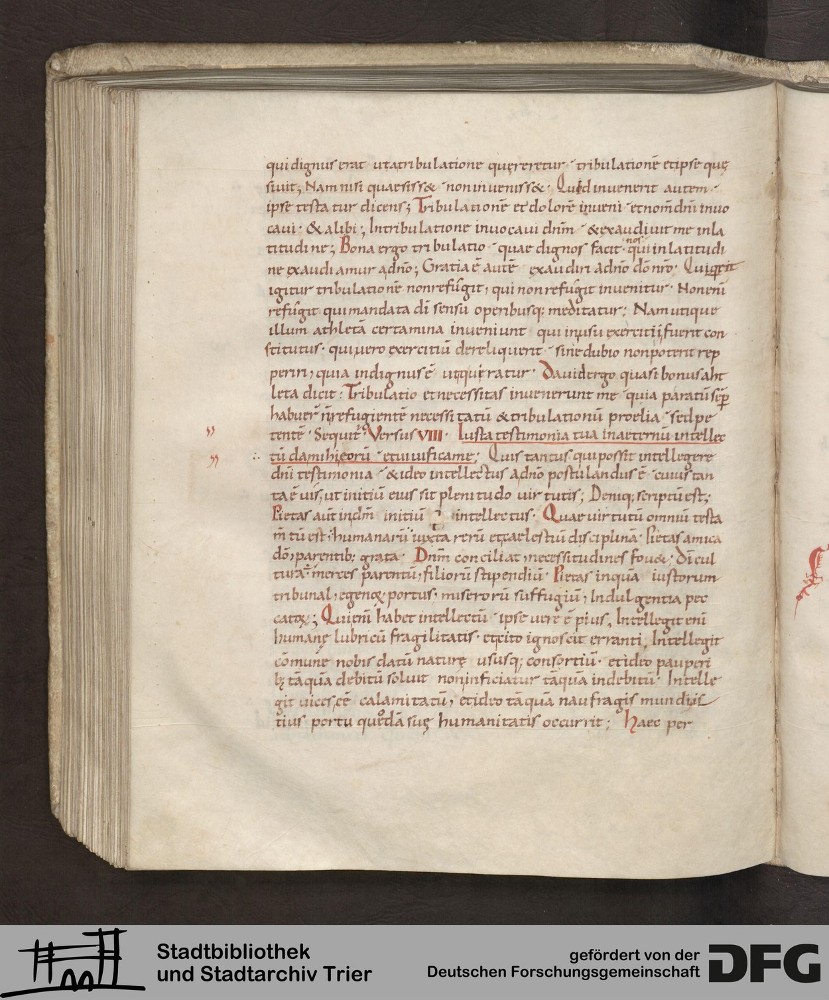 qui dignus erat ut a tribulatione quęreretur · tribulationē et ipse quę
siuit; Nam nisi quaesiss& · non inueniss&· Quid inuenerit autem ·
ipse testatur dicens; Tribulationē et dolorē inueni · et nom̄ dn̄i inuo
caui · & alibi; In tribulatione inuocaui dn̄m · & exaudiuit me in la
titudine; Bona ergo tribulatio · quae dignos facit · nos qui in latitudi
ne exaudiamur a dn̄o; Gratia ē autē exaudiri a dn̄o dō nr̄o· Qui
igitur tribulationē non refugit, qui non refugit inuenitur · Non enī
refugit qui mandata dī sensu operibusq; meditatur; Nam utique
illum athletā certamina inueniunt qui in usu exercitii fuerit con
stitutus · qui uero exercitiū dereliquerit · sine dubio non poterit rep
periri, quia indignus ē ut quęratur · Dauid ergo quasi bonus ath
leta dicit : Tribulatio et necessitas inuenerunt me · quia paratū sēp
habuer̄ n̄ refugientē necessitatū & tribulationū proelia · sed pe
tentē · Sequit̄ Versus VIII · Iusta testimonia tua in aeternū intellec
tū da mihi eorū · et uiuificame; Quis tantus qui possit intellegere
dn̄i testimonia · & ideo intellectus a dn̄o postulandus ē · cuius tan
ta ē uis, ut initiū eius sit plenitudo uirtutis; Deniq; scriptū est;
Pietas aūt in dn̄m initiū intellectus · Quae uirtutū omniū testa
m̄tū est · humanarū iuxta rerū et caelestiū disciplina · Pietas amica
dō, parentib; grata · Dn̄m conciliat, necessitudines fou& · Dī cul
tura · merces parentū, filiorū stipendiū · Pietas inquā iustorum
tribunal, egenoꝝ portus · miserorū suffugiū, Indulgentia pec
catoꝝ; Qui enī habet intellectū · ipse uere ē pius, Intellegit enī
humanę lubricū fragilitatis · et cito ignoscit erranti, Intellegit
cōmune nobis datū naturę ususq; consortiū · et ideo pauperi
b; tāquā debitū soluit non inficiatur tāquā indebitū · Intelle
git uices ēē calamitatū, et ideo tāquā naufragis mundi
tius portu quodā suę humanitatis occurrit; Haec per
Stadtbibliothek
und Stadtarchiv Trier
gefördert von der
Deutschen Forschungsgemeinschaft
DFG